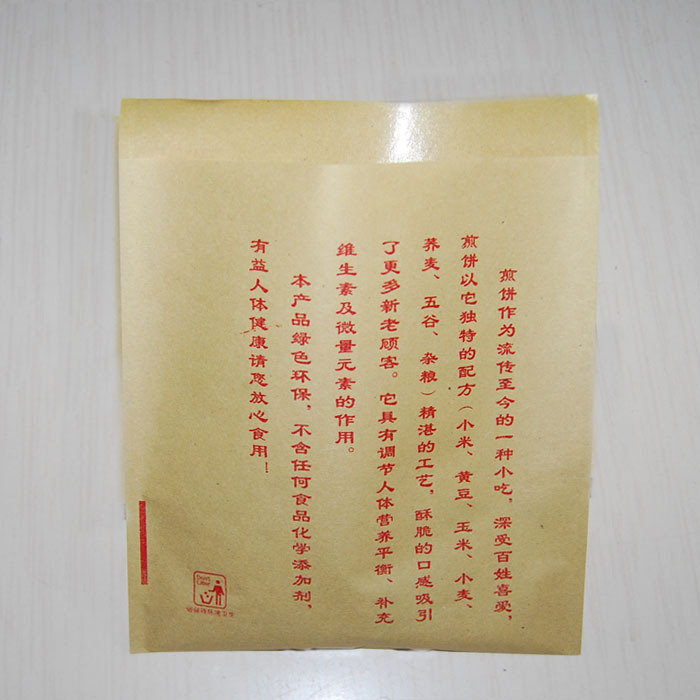 煎饼作为流传至今的一种小吃，深受百姓喜爱，
煎饼以它独特的配方（小米、黄豆、玉米、小麦、
荞麦、五谷、杂粮）精湛的工艺，酥脆的口感吸引
了更多新老顾客。它具有调节人体营养平衡、补充
维生素及微量元素的作用。
本产品绿色环保，不含任何食品化学添加剂，
有益人体健康请您放心食用！